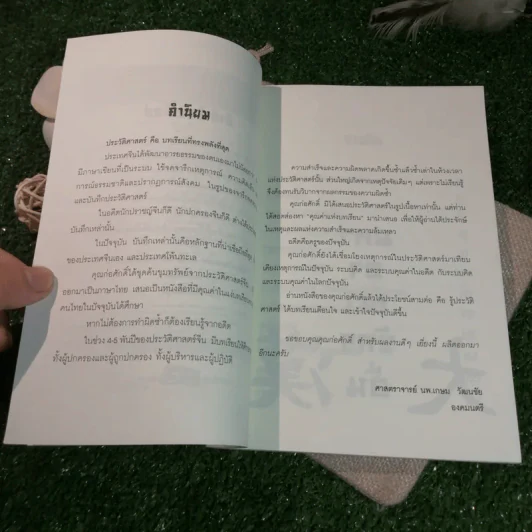 คำนิยม
ประวัติศาสตร์ คือ บทเรียนที่ทรงพลังที่สุด
ประเทศจีนได้พัฒนาอารยธรรมของตนเองมาไม่น้อยกว่า
มีภาษาเขียนที่เป็นระบบ ใช้จดจารึกเหตุการณ์ ความคิดเห็น
การณ์ธรรมชาติและปรากฏการณ์สังคม ในรูปของจารึก
และบันทึกประวัติศาสตร์
ในอดีตนักปราชญ์จีนก็ดี นักปกครองจีนก็ดี
บันทึกเหล่านั้น
ในปัจจุบัน บันทึกเหล่านั้นคือหลักฐานที่น่าเชื่อถือ
ของประเทศจีนเอง และประเทศใต้บทะเล
คุณก่อศักดิ์ได้ขุดค้นขุมทรัพย์จากประวัติศาสตร์จีน
ออกมาเป็นภาษาไทย เสนอเป็นหนังสือที่มีคุณค่าในแง่บทเรียน
คนไทยในปัจจุบันได้ศึกษา
หากไม่ต้องการทำผิดซ้ำก็ต้องเรียนรู้จากอดีต
ในช่วง 4-5 พันปีของประวัติศาสตร์จีน มีบทเรียน
ทั้งผู้ปกครองและผู้ถูกปกครอง ทั้งผู้บริหารและผู้ปฏิบัติ
ความสำเร็จและความผิดพลาดเกิดขึ้นซ้ำแล้วซ้ำเล่าในห้วงเวลา
แห่งประวัติศาสตร์นั้น ส่วนใหญ่เกิดจากเหตุปัจจัยเดิมๆ แต่เพราะไม่เรียนรู้
จึงต้องทนรับวิบากจากผลกรรมของความผิดซ้ำ
คุณก่อศักดิ์ มิได้เสนอประวัติศาสตร์ในรูปเนื้อหาเท่านั้น แต่ท่าน
ได้สอดส่องหา "คุณค่าแห่งบทเรียน" มานำเสนอ เพื่อให้ผู้อ่านได้ประจักษ์
ในเหตุและผลแห่งความสำเร็จและความล้มเหลว
อดีตคือครูของปัจจุบัน
คุณก่อศักดิ์ยังได้เชื่อมโยงเหตุการณ์ในประวัติศาสตร์มาเทียบ
เคียงเหตุการณ์ในปัจจุบัน ระบบคิด และระบบคุณค่าในอดีต กับระบบคิด
และระบบคุณค่าในโลกปัจจุบัน
อ่านหนังสือของคุณก่อศักดิ์แล้วได้ประโยชน์สามต่อ คือ รู้ประวัติ
ศาสตร์ ได้บทเรียนเตือนใจ และเข้าใจปัจจุบันดีขึ้น
ขอขอบคุณคุณก่อศักดิ์ สำหรับผลงานดีๆ เยี่ยงนี้ ผลิตออกมา
อีกนะครับ
ศาสตราจารย์ นพ.เกษม วัฒนชัย
องคมนตรี